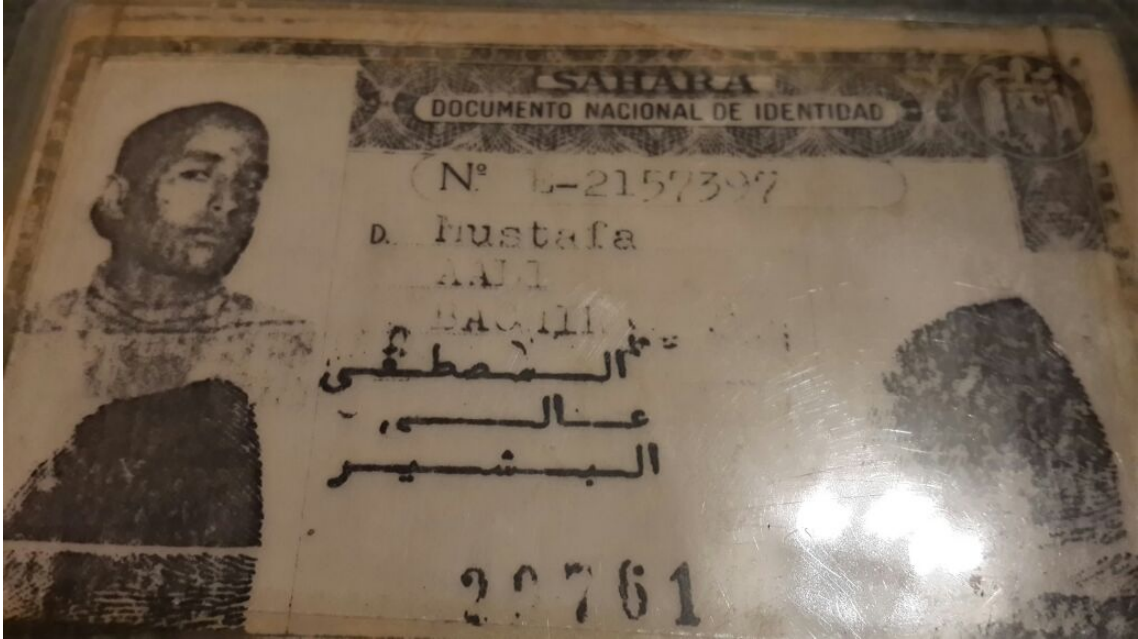 SAHARA
DOCUMENTO NACIONAL DE IDENTIDAD
Nº -2157397
D. Mustafa
AALI
المصطفى
عالي
البشير
761